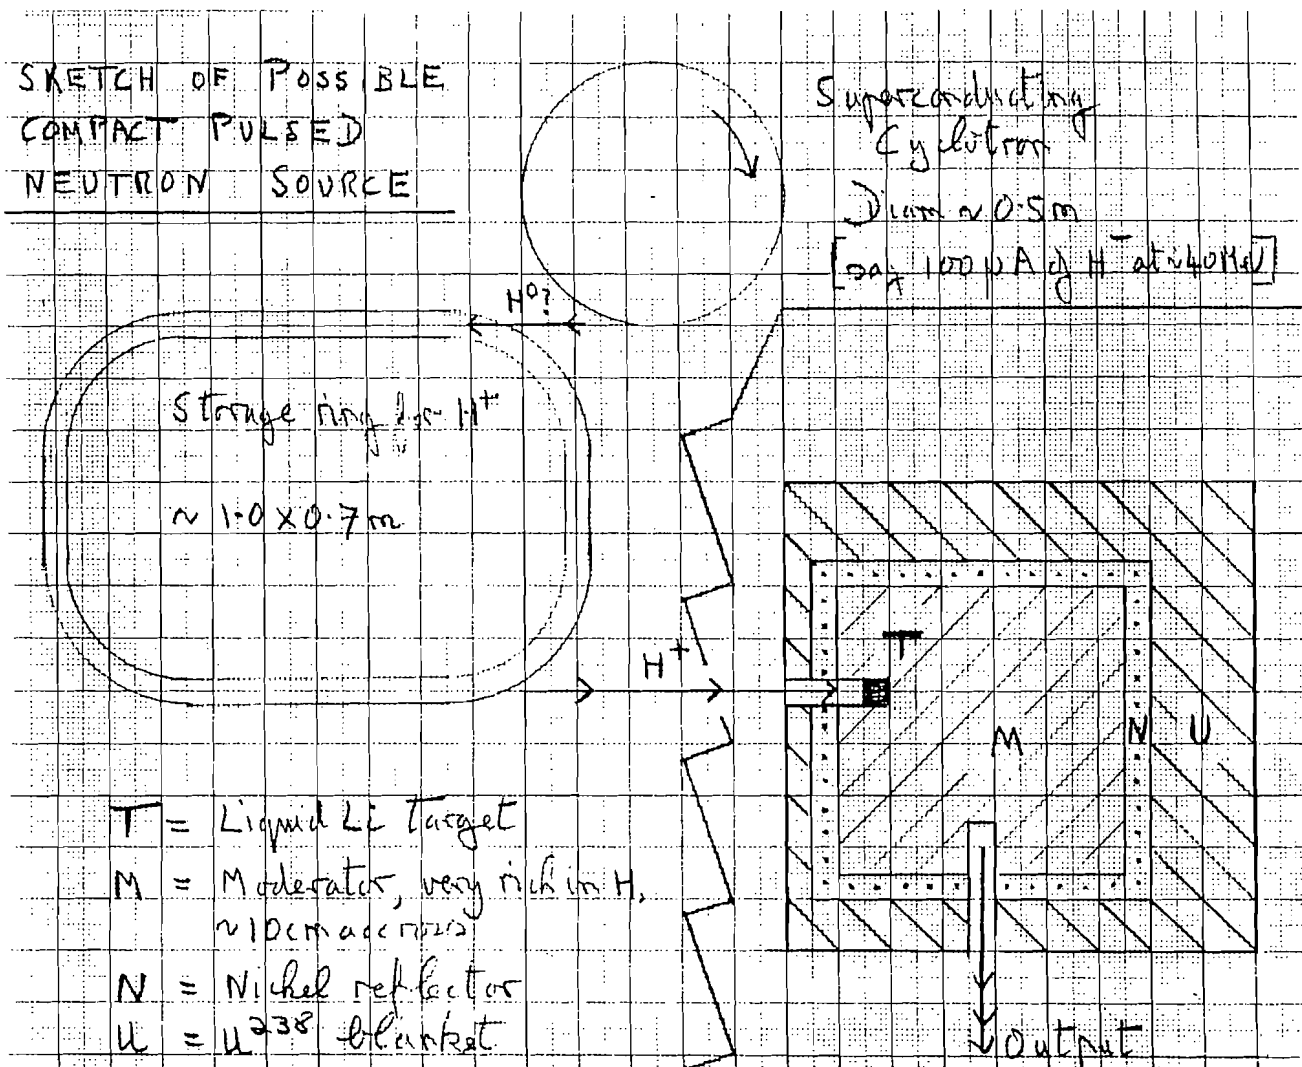 SKETCH OF POSSIBLE
COMPACT PULSED
NEUTRON SOURCE
Superconducting
Cyclotron
Diam ~ 0.5m
[say 100 μA of H⁻ at ~40MeV]
H⁰?
Storage ring for H⁺
~ 1.0 x 0.7m
H⁺
T
M
N
U
T = Liquid Li Target
M = Moderator, very rich in H,
~10cm across
N = Nickel reflector
U = U²³⁸ blanket
Output